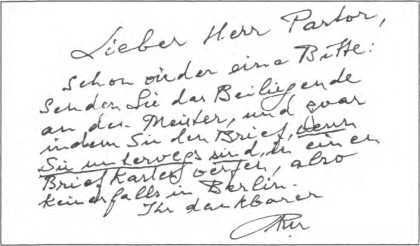 Lieber Herr Pastor,
Schon wieder eine Bitte:
Senden Sie das Beiliegende
an den Meister, und zwar
indem Sie den Brief, wenn
Sie unterwegs sind, in einen
Briefkasten werfen, also
keinerfalls in Berlin.
Ihr dankbarer